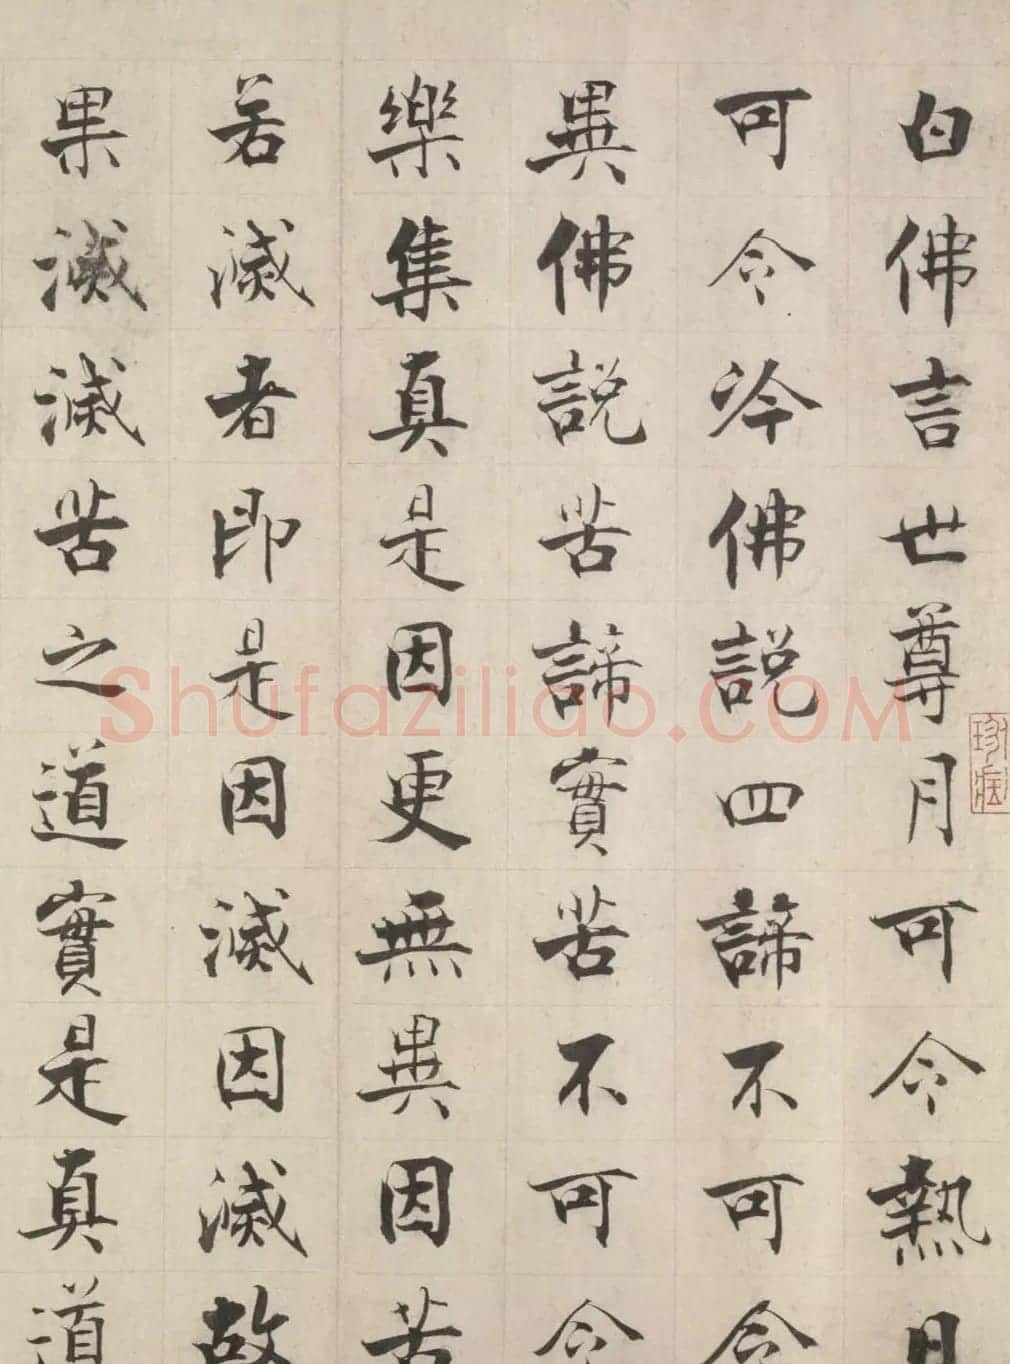 白佛言世尊月可令熱日
可令冷佛說四諦不可令
異佛說苦諦實苦不可令
樂集真是因更無異因苦
若滅者即是因滅因滅故
果滅滅苦之道實是真道
Shufaziliao.COM